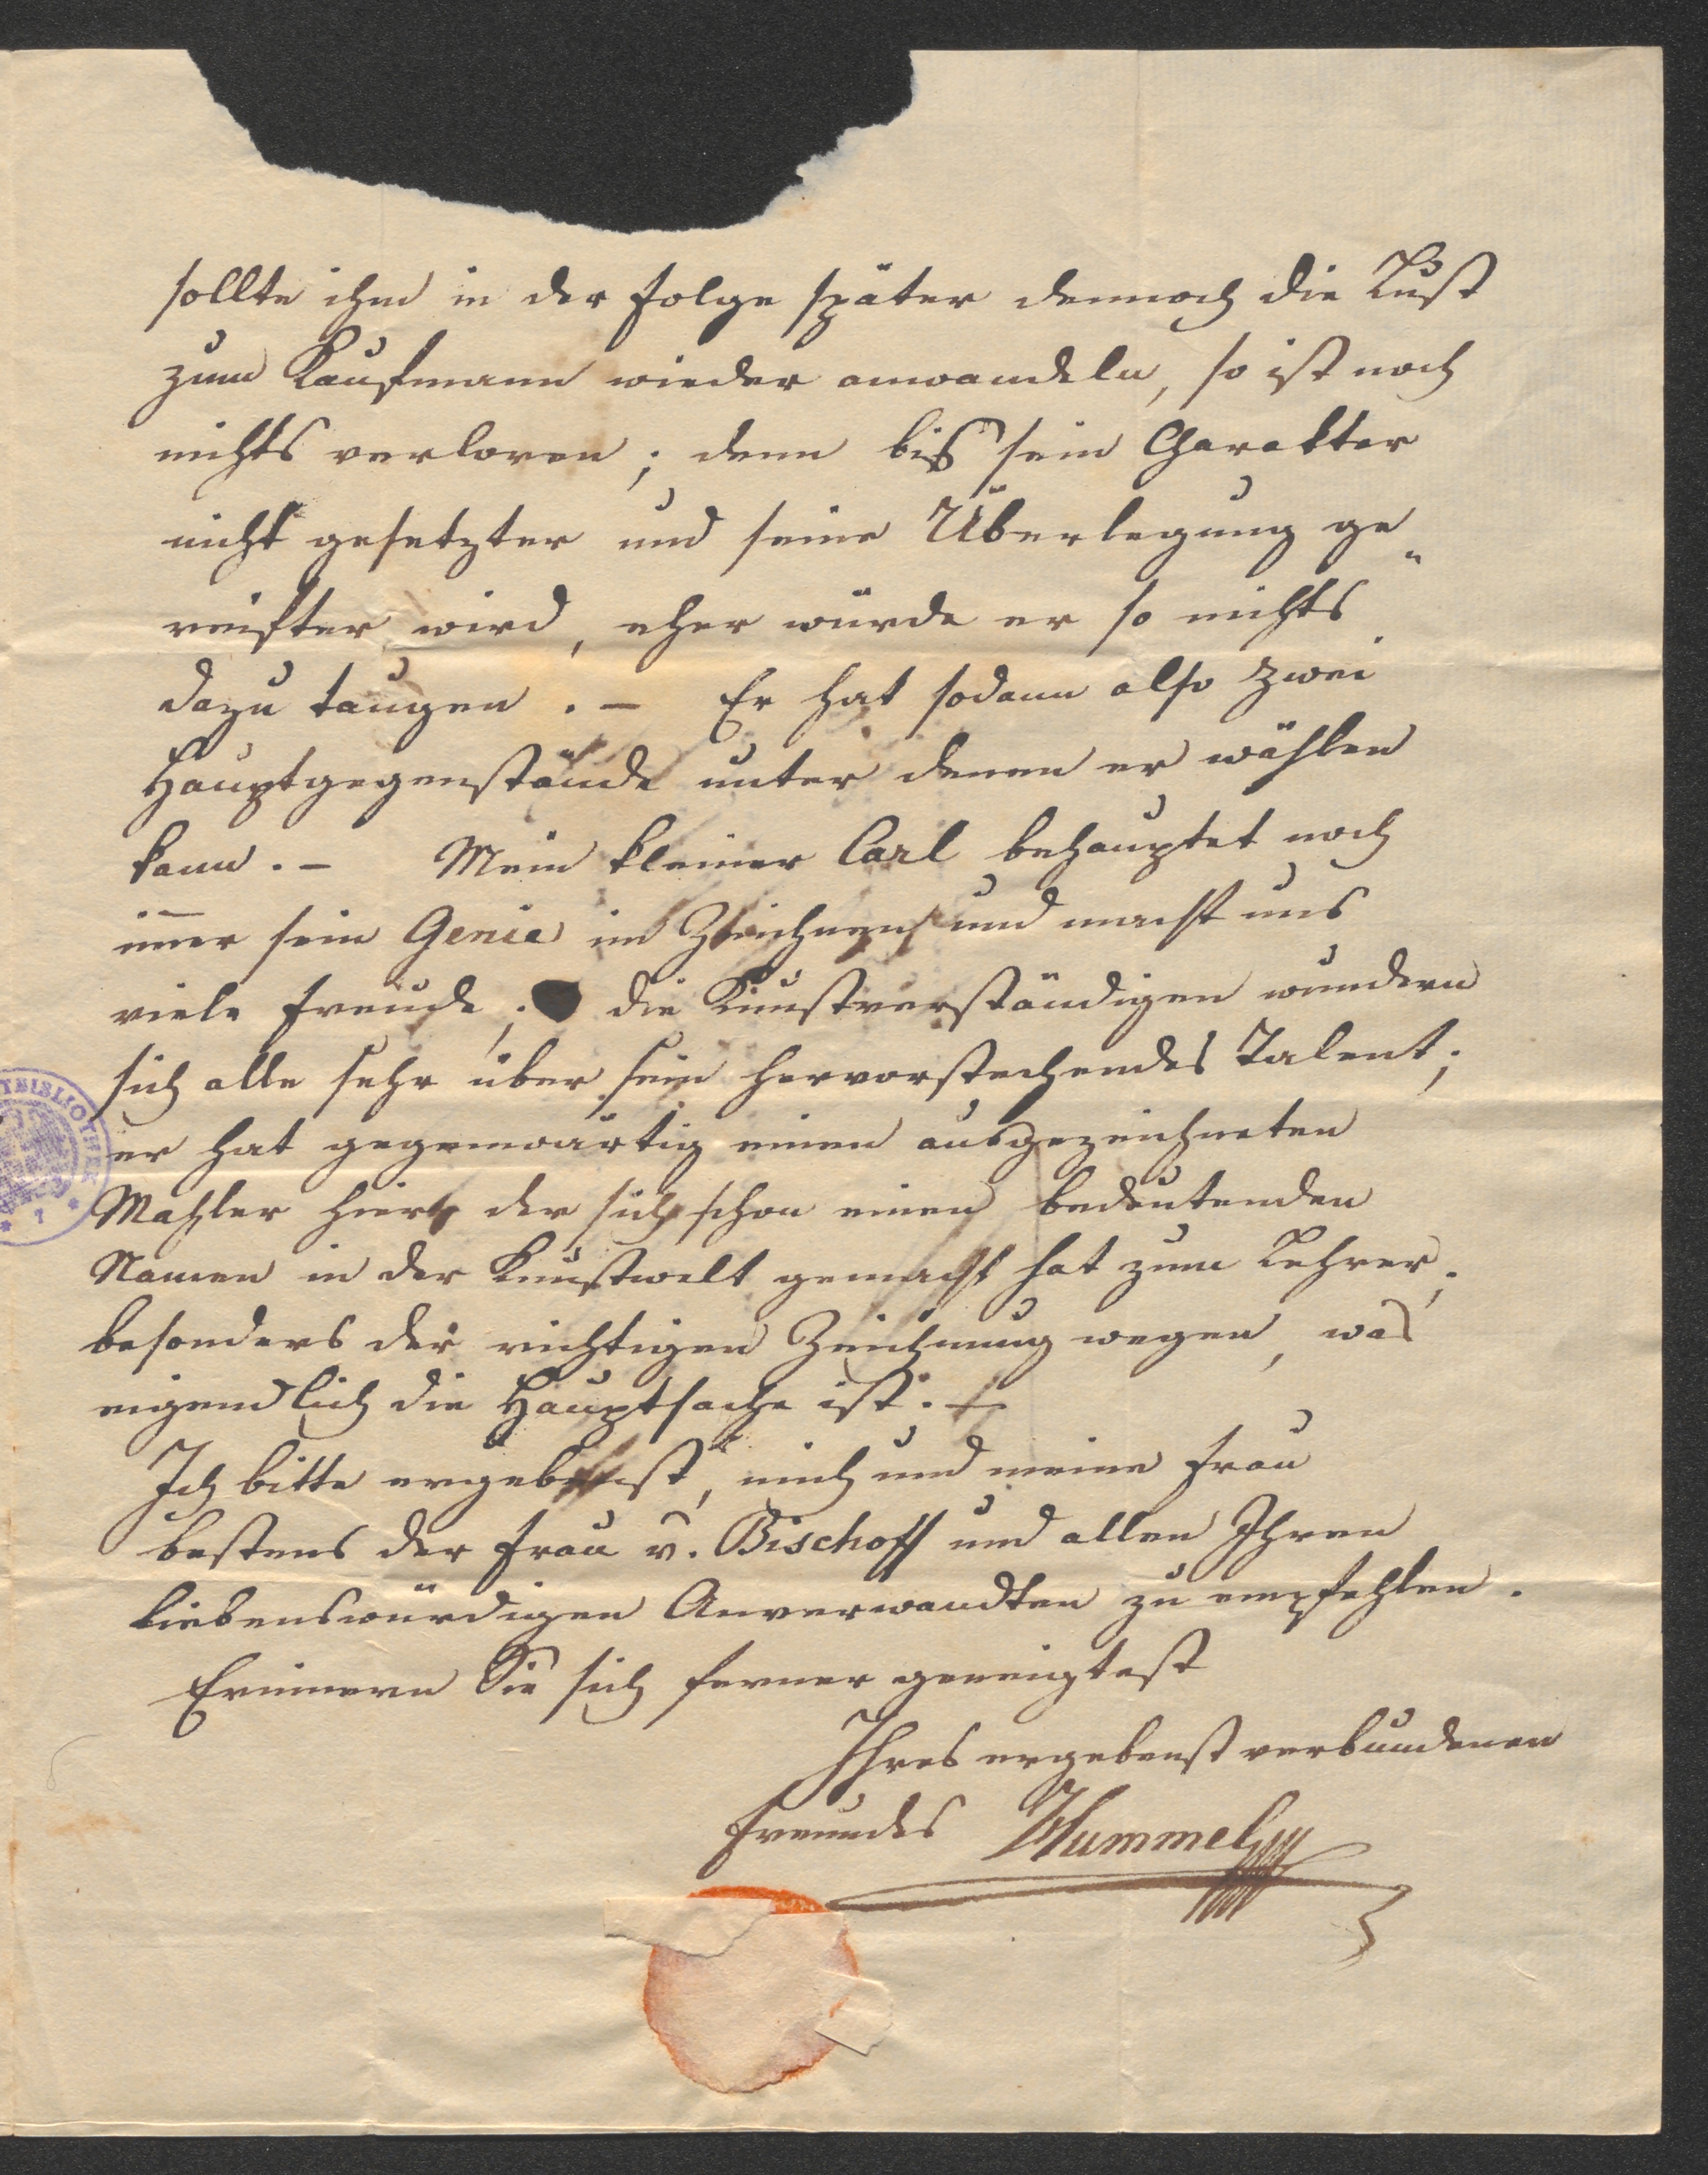 sollte ihm in der Folge später dennoch die Lust
zum Kaufmann wieder anwandeln, so ist noch
nichts verloren; denn bis sein Charakter
nicht gesetzter und seine Überlegung ge„
reifter wird, eher würde er so nichts
dazu taugen. – Er hat sodann also zwei
Hauptgegenstände unter denen er wählen
kann. – Mein kleiner Carl behauptet noch
im̅er sein Genie im Zeichnen und macht uns
viele Freude; die Kunstverständigen wundern
sich alle sehr über sein hervorstechendes Talent;
er hat gegenwärtig einen ausgezeichneten
Mahler hier, der sich schon einen bedeutenden
Namen in der Kunstwelt gemacht hat zum Lehrer,
besonders der richtigen Zeichnung wegen, was
eigendlich die Hauptsache ist. –
Ich bitte ergebenst, mich und meine Frau
bestens der Frau v. Bischoff und allen Ihren
liebenswürdigen Anverwandten zu empfehlen.
Erinnern Sie sich ferner geneigtest
Ihres ergebenst verbundenen
Freundes Hummel
TBIBLIOTHEK
* 7 *